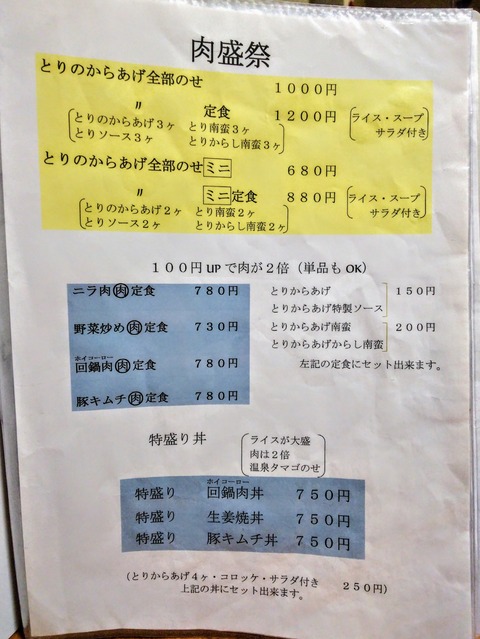 肉盛祭
とりのからあげ全部のせ 1000円
〃 定食 1200円 (ライス・スープ
(とりのからあげ3ヶ とり南蛮3ヶ サラダ付き)
とりソース3ヶ とりからし南蛮3ヶ)
とりのからあげ全部のせミニ 680円
〃 ミニ定食 880円 (ライス・スープ
(とりのからあげ2ヶ とり南蛮2ヶ サラダ付き)
とりソース2ヶ とりからし南蛮2ヶ)
100円UPで肉が2倍(単品もOK)
ニラ肉㊥定食 780円
野菜炒め肉定食 730円
ホイコーロー
回鍋肉肉定食 780円
豚キムチ肉定食 780円
とりからあげ 150円
とりからあげ特製ソース
とりからあげ南蛮 200円
とりからあげからし南蛮
左記の定食にセット出来ます。
特盛り丼
(ライスが大盛
肉は2倍
温泉タマゴのせ)
ホイコーロー
特盛り 回鍋肉丼 750円
特盛り 生姜焼丼 750円
特盛り 豚キムチ丼 750円
(とりからあげ4ヶ・コロッケ・サラダ付き 250円)
上記の丼にセット出来ます。